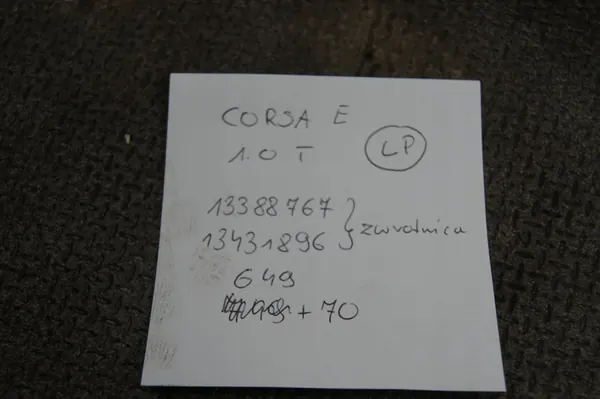 CORSA E
1.0 T LP
13388767
13431896 } zwrotnica
649
+ 70